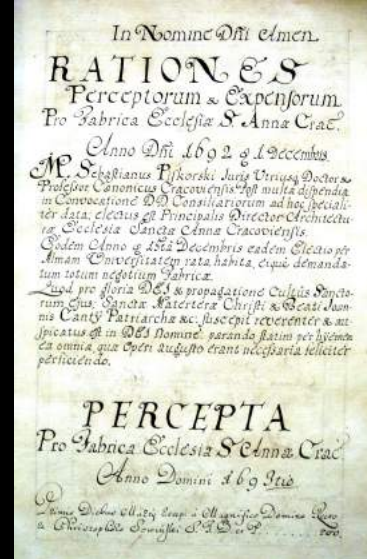 In Nomine Dñi Amen
RATIONES
Perceptorum & Expensorum
Pro Fabrica Ecclesiæ S. Annæ Crac.
Anno Dñi 1692 1 Decembris
M. Sebastianus Piskorski Juris Utriusq Doctor &
Professor Canonicus Cracoviensis. Post multa dispendia
in Convocatione DD Consiliariorum ad hoc speciali-
ter data; electus est Principalis Director Architectu-
ræ Ecclesiæ Sanctæ Annæ Cracoviensis.
Eodem Anno Decembris eadem Electio per
Almam Universitatem rata habita, eiquè demanda-
tum totum negotium Fabricæ.
Quod pro gloria DEI & propagatione Cultûs Sancto-
rum ejus; Sanctæ Materteræ Christi & Beati Joan-
nis Cantÿ Patriarchæ &c: suscepit reverenter & au-
spicatus est in DEI Nomine: parando statim per hÿemem
ea omnia, quæ Operi augusto erant necessaria feliciter
perficiendo.
PERCEPTA
Pro Fabrica Ecclesiæ S. Annæ Crac
Anno Domini 169 3tio
Primis Diebus à Magnifico Domino
Christophoro